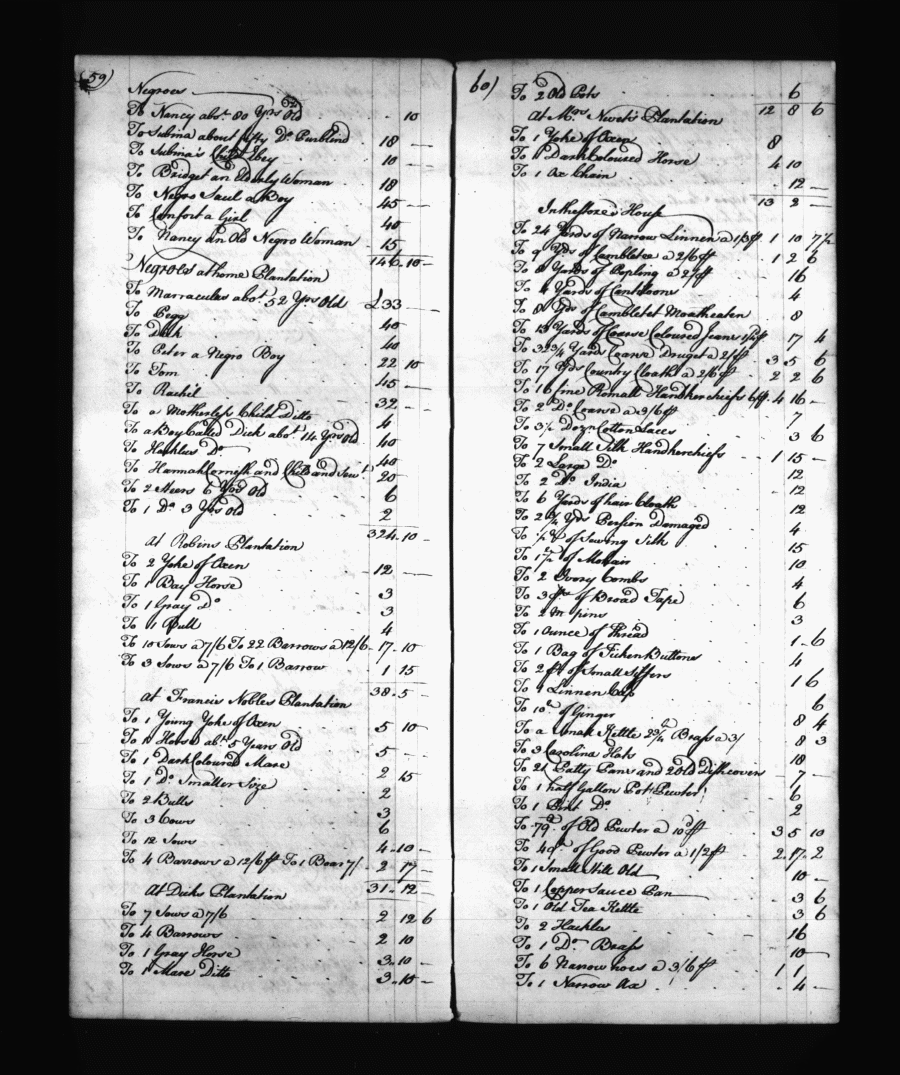 59)
Negroes
To Nancy abot. 80 Yrs Old .. 10
To Subina about fifty Do. Purblind 18 —
To Subina's Child 10 —
To Bridget an Elderly Woman 18
To Negro Saul a Boy 45 —
To Comfort a Girl 40
To Nancy an Old Negro Woman 15
146 .. 10 —
Negroes at home Plantation
To Marracules abot. 52 Yrs Old £33 —
To Pegg 40
To Dick 40
To Peter a Negro Boy 22 10
To Tom 45 —
To Rachel 32 —
To a Motherless Child Ditto 4
To a Boy Called Dick abot. 14 Yrs Old 40
To Hackles Do 40
To Hannah Cornish and Child and 20
To 2 Steers 6 Yrs Old 6
To 1 Do 3 Yrs Old 2
324 .. 10 —
At Robins Plantation
To 2 Yoke of Oxen 12 —
To 1 Bay Horse 3
To 1 Gray Do 3
To 1 Bull 4
To 10 Sows a 7/6 To 22 Barrows a 12/6 17 .. 10
To 3 Sows a 7/6 To 1 Barrow 1 15
38 .. 5 —
At Francis Nobles Plantation
To 1 Young Yoke of Oxen 5 10 —
To 1 Horse abt. 5 Years Old 5 —
To 1 Dark Coloured Mare 2 15
To 1 Do. Smaller Size 2
To 2 Bulls 3
To 3 Cows 6
To 12 Sows 4 .. 10 —
To 4 Barrows a 12/6 To 1 Boar 7/ 2 17 —
31 .. 12 —
At Dicks Plantation
To 7 Sows a 7/6 2 12 6
To 4 Barrows 2 10
To 1 Gray Horse 3 .. 10 —
To 1 Mare Ditto 3 .. 10 —
60)
To 2 Old Pots 6
12 8 6
At Mrs Nivets Plantation
To 1 Yoke of Oxen 8
To 1 Dark Coloured Horse 4 10
To 1 Ox Chain 12 —
13 2 —
In the Store House
To 24 Yards of Narrow Linnen a 1/3 1 10 7½
To 9 Yds of Cambletee a 2/6 1 2 6
To 8 Yards of Popling a 2/ 16
To 4 Yards of Cantloons 4
To 8 Yds of Camblet Motheaten 8
To 13 Yards of Coarse Coloured Jeans 17 4
To 32¾ Yards Coarse Druget a 2/ 3 5 6
To 17 Yds Country Cloath a 2/6 2 2 6
To 16 fine Romall Handkerchiefs 6/ 4 16 —
To 2 Do. Coarse a 3/6 7
To 3½ Dozn Cotton Laces 3 6
To 7 Small Silk Handkerchiefs 1 15 —
To 2 Large Do 12
To 2 Do. India 12
To 6 Yards of hair Cloath 12
To 2¾ Yds Persion Damaged 4
To of Sewing Silk 15
To of Mohair 10
To 2 Ivory Combs 4
To 3 of Broad Tape 6
To 2 m pins 3
To 1 Ounce of Thread 1 .. 6
To 1 Bag of Buttons 4
To 2 of Small 1 6
To 1 Linnen Cap 6
To 10 of Ginger 8 4
To a Small Kettle 2¾ Brass a 3/ 8 3
To 3 Carolina Hats 18
To 21 Patty Pans and 2 Old Dish covers 7 —
To 1 half Gallon Pot Pewter 6
To 1 Pint Do. 2
To 79 of Old Pewter a 10 3 5 10
To 49 of Good Pewter a 1/2 2 17 .. 2
To 1 Small Still Old 10 —
To 1 Copper Sauce Pan 3 6
To 1 Old Tea Kettle 3 6
To 2 Hackles 16
To 1 Do. Brass 10 —
To 6 Narrow hoes a 3/6 1 1
To 1 Narrow Ax 4 —